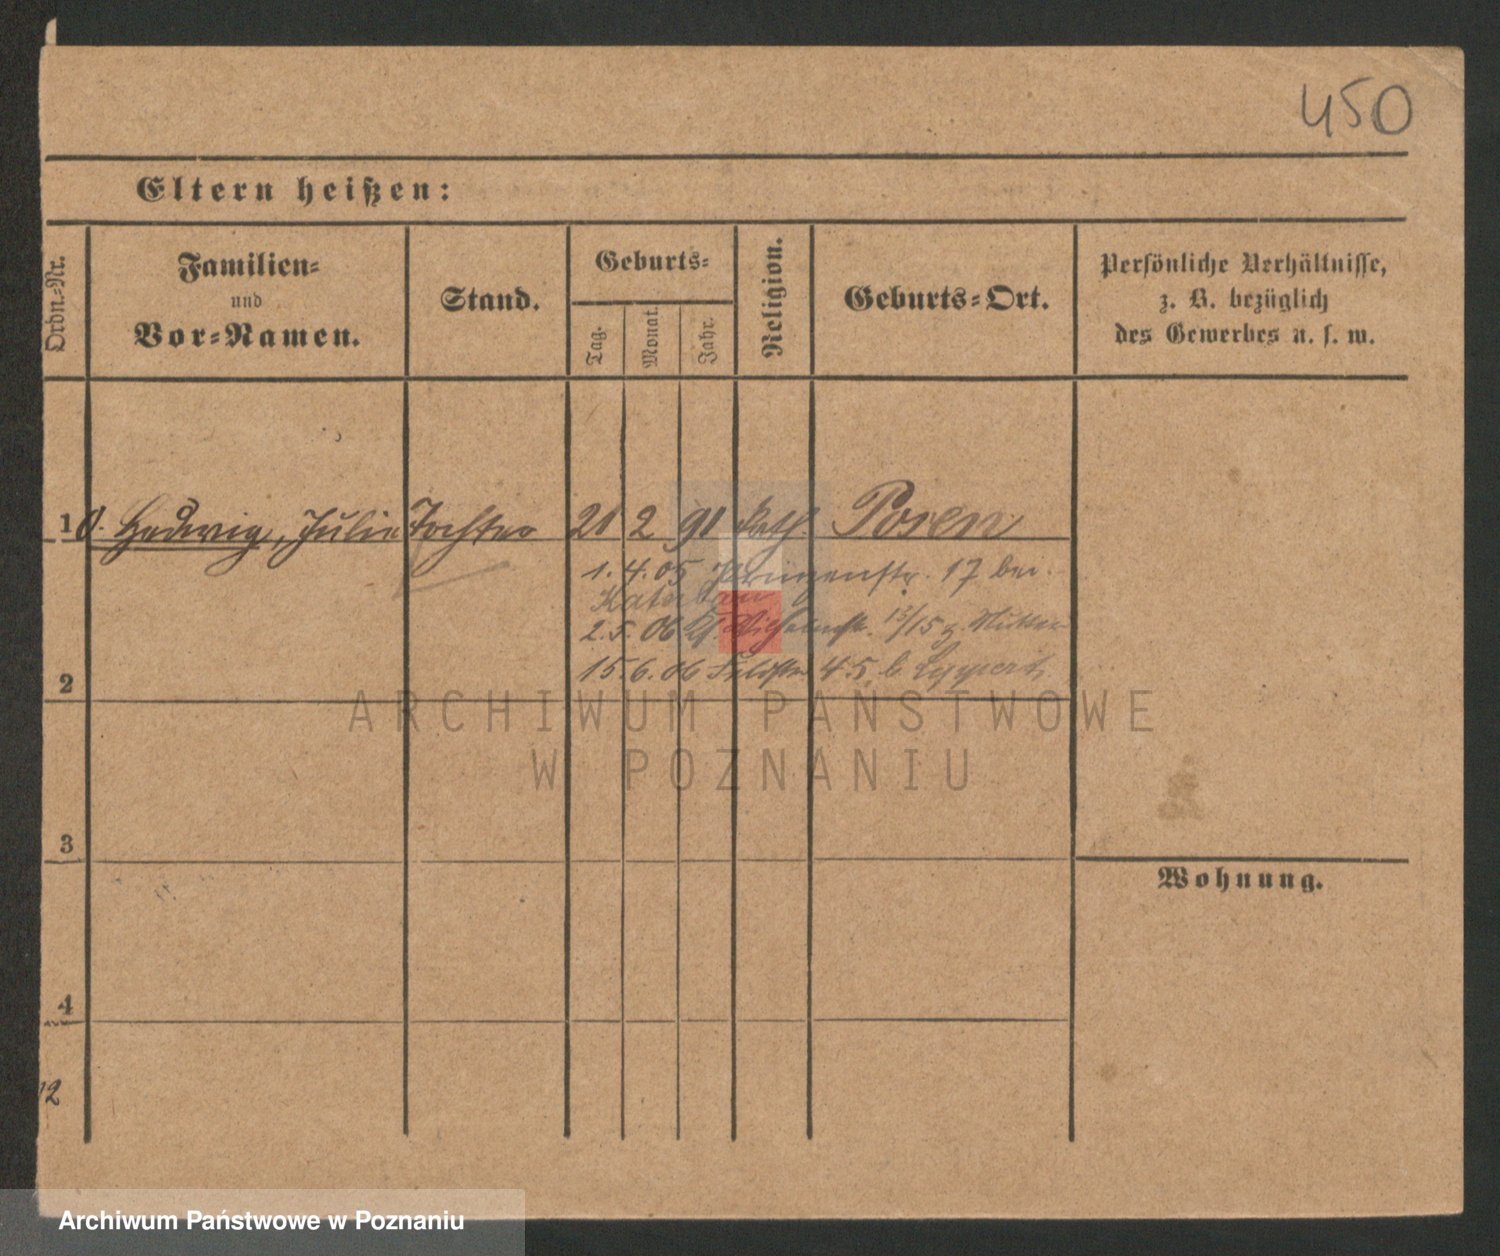 450
Eltern heißen:
Ordn.-Nr.
Familien-
und
Vor-Namen.
Stand.
Geburts-
Tag.
Monat.
Jahr.
Religion.
Geburts-Ort.
Persönliche Verhältnisse,
z. B. bezüglich
des Gewerbes u. s. w.
10. Hedwig, Julie Tochter 21 2 91 kath. Posen
1. 4. 05 17 bei
2. 5. 06 13/15 z. Mutter
2 15. 6. 06 45 b Lippert
ARCHIWUM PAŃSTWOWE
W POZNANIU
3
Wohnung.
4
12
Archiwum Państwowe w Poznaniu